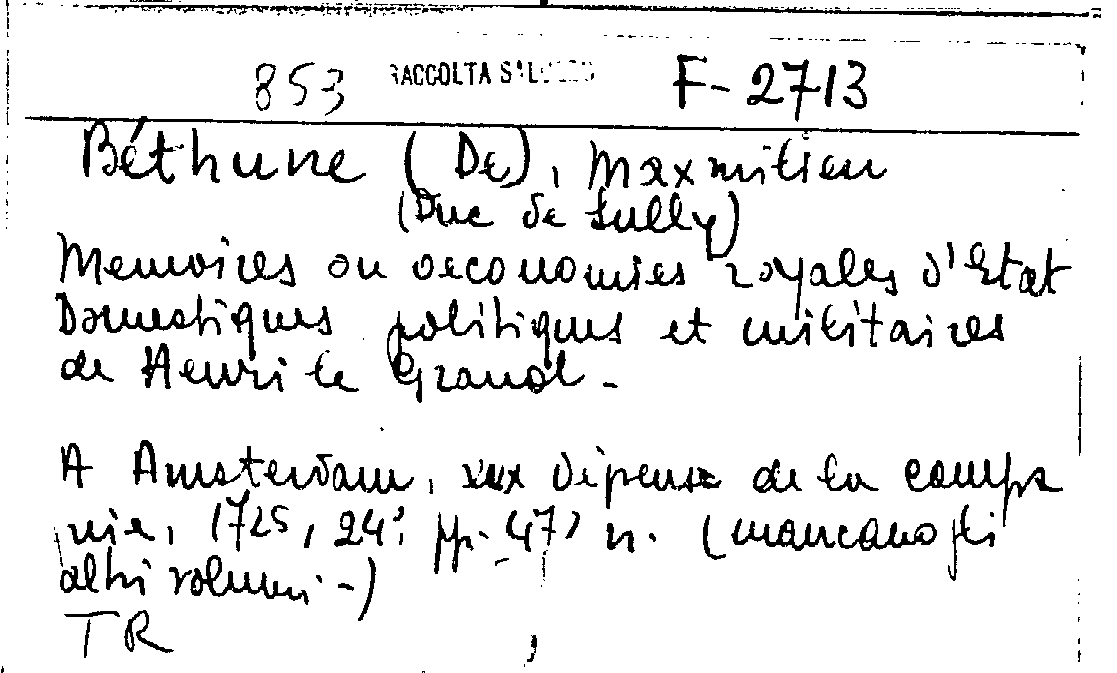 853 RACCOLTA F-2713
Béthune (De), Maxmilien
(Duc de Sully)
Memoires ou oeconomies royales d'Etat
Domestiques politiques et militaires
de Henri le Grand -
A Amsterdam, aux dépense de la compa
nie, 1725, 24° pp. 47 n. (mancano gli
altri volumi -)
TR